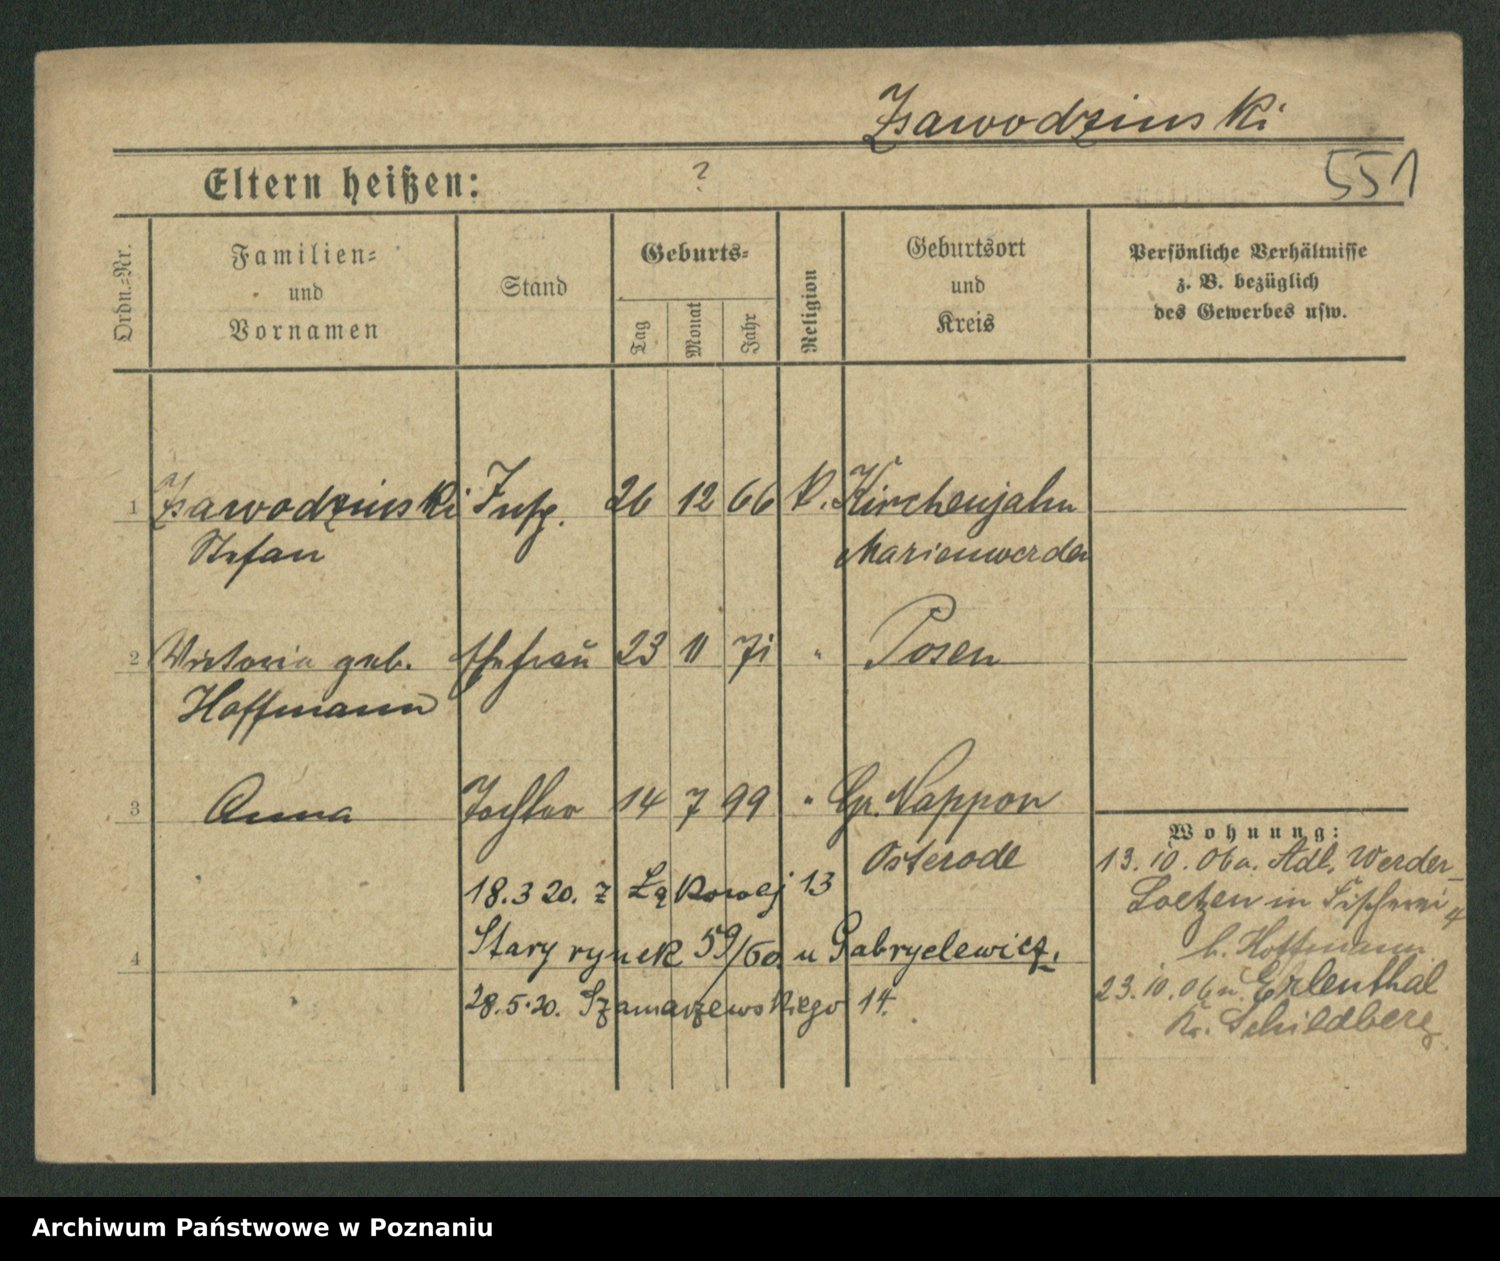 Zawodzinski
Eltern heißen: ?
551
Ordn.-Nr.
Familien-
und
Vornamen
Stand
Geburts-
Tag
Monat
Jahr
Religion
Geburtsort
und
Kreis
Persönliche Verhältnisse
z. B. bezüglich
des Gewerbes usw.
1 Zawodzinski Insp. 26 12 66 k. Kirchenjahn
Stefan Marienwerder
2 Victoria geb. Ehefrau 23 11 71 " Posen
Hoffmann
3 Anna Tochter 14 7 99 " Gr. Nappon
Osterode
Wohnung:
13.10.06 a. Adl. Werder
Loetzen in Fischerei 4
b. Hoffmann
23.10.06 n. Erlenthal
Kr. Schildberg
18.3 20. z Łąkowej 13
4 Stary rynek 59/60 u Gabryelewicz.
28.5.20. Szamarzewskiego 14.
Archiwum Państwowe w Poznaniu